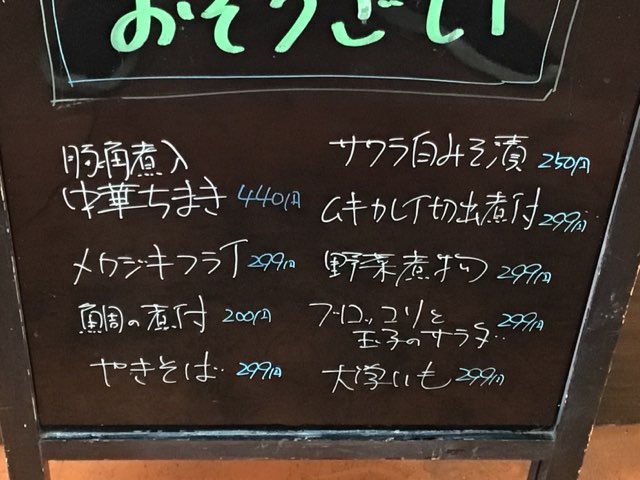 おそうざい
豚角煮入
中華ちまき 440円
メカジキフライ 299円
鯛の煮付 200円
やきそば 299円
サワラ白みそ漬 250円
ムキカレイ切出煮付 299円
野菜煮物 299円
ブロッコリと
玉子のサラダ 299円
大学いも 299円